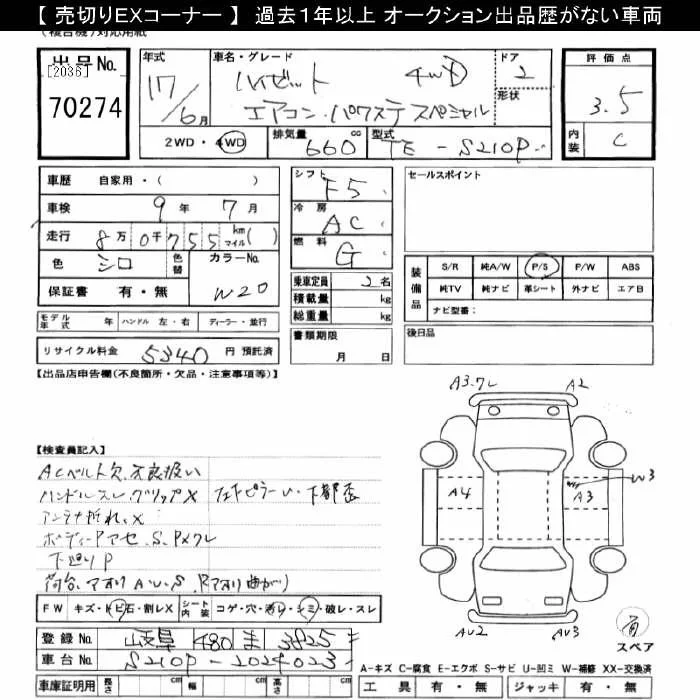 【 売切りEXコーナー 】 過去1年以上 オークション出品歴がない車両
(複合機)対応用紙
出品No.
[2036]
70274
年式
17/6月
車名・グレード
ハイゼット 4WD
エアコン・パワステ スペシャル
ドア
2
形状
2WD・4WD
排気量
660 cc
型式
TE-S210P
評価点
3.5
内装
C
車歴 自家用・( )
車検 9年7月
走行 8万0千755 km マイル( )
色 シロ
色替
カラーNo.
W20
保証書 有・無
モデル年式 年 ハンドル 左・右 ディーラー・並行
リサイクル料金 5340 円 預託済
シフト F5
冷房 AC
燃料 G
乗車定員 2名
積載量 kg
総重量 kg
書類期限
月 日
セールスポイント
装備品
S/R 純A/W P/S P/W ABS
純TV 純ナビ 革シート 外ナビ エアB
ナビ型番:
後日品
【出品店申告欄(不良箇所・欠品・注意事項等)】
【検査員記入】
ACベルト欠、不良扱い
ハンドルスレ、グリップX
アンテナ折れ、X
ボディーPアセ、S、PXワレ
下廻りP
荷台、アオリAUS
FW キズ・トビ石・割レX シート内装 コゲ・穴・汚レ・シミ・破レ・スレ
登録No. 岐阜 480 ま 3825
車台No. S210P-2024023
車庫証明用 長さ cm 幅 cm 高さ cm
A3.ワレ
A2
A4
A3
W3
AU2
AU3
有
スペア
A-キズ C-腐食 E-エクボ S-サビ U-凹ミ W-補修 XX-交換済
工具 有・無 ジャッキ 有・無